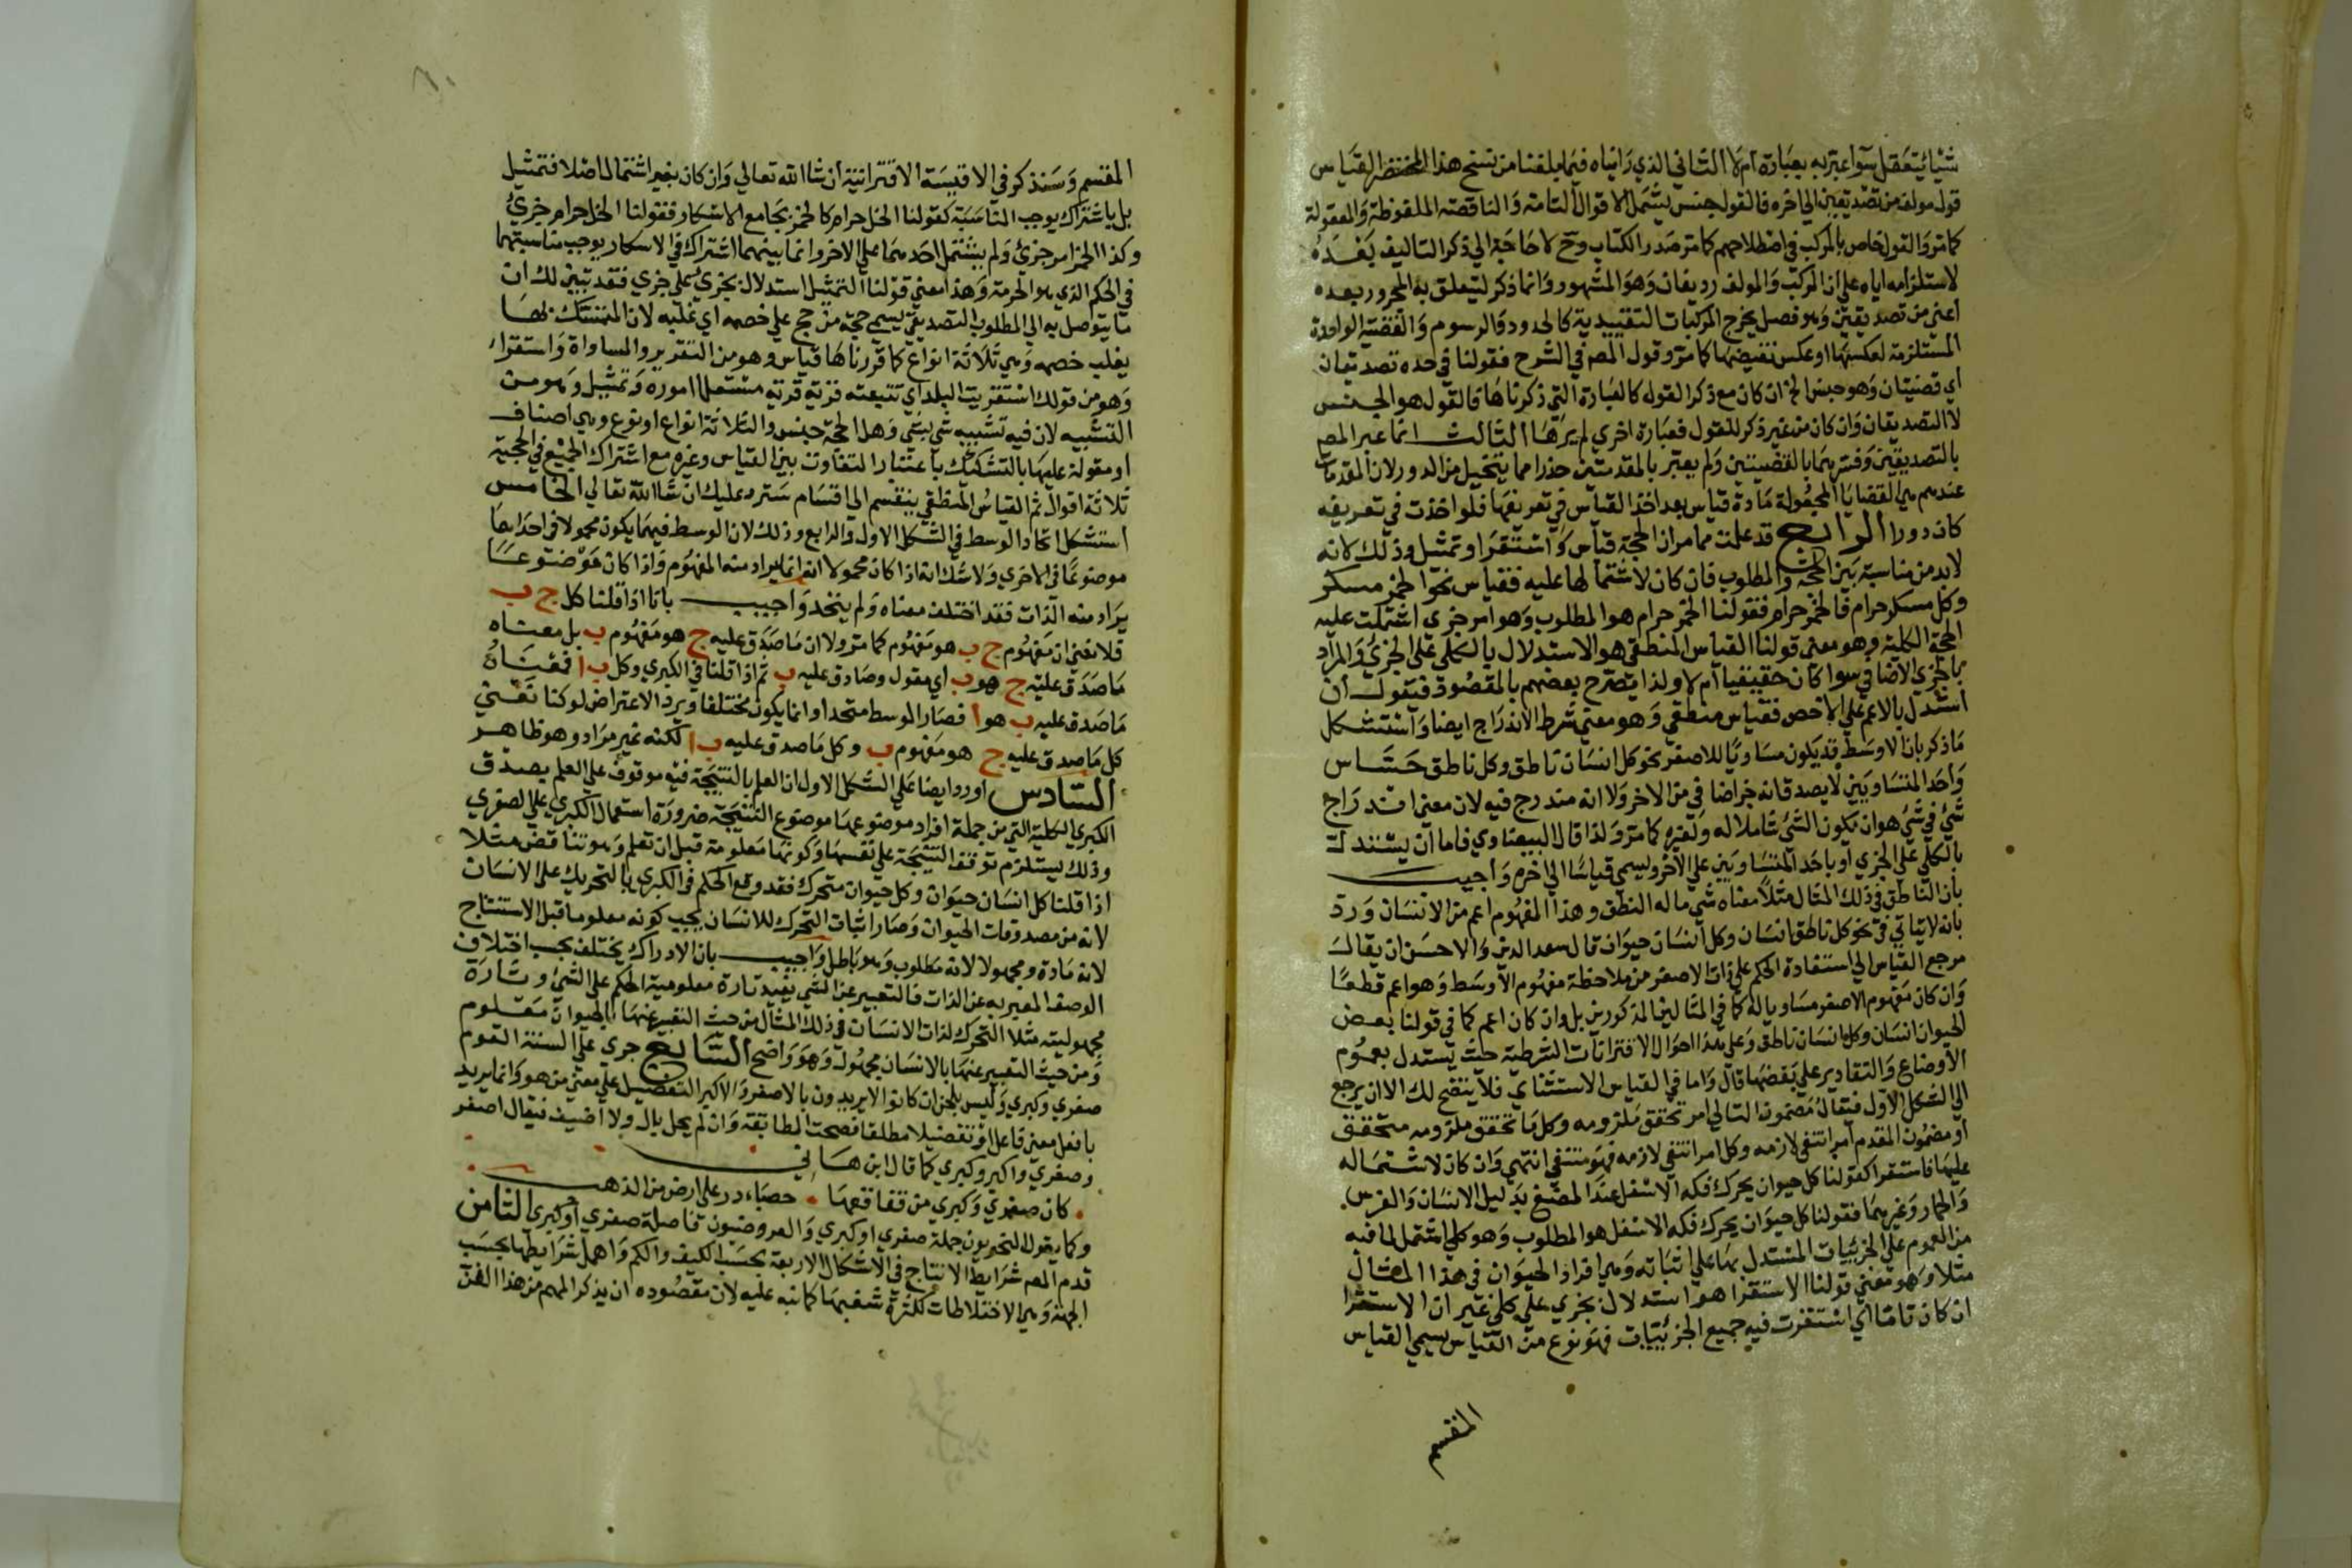 شيئا يتعقل سوا عبر به بعبارة ام لا الثاني الذي راياه فيما بلغنا من نسخ هذا المختصر القياس
قول مولف من تصديقين الى اخره فالقول جنس يشمل الاقوال التامة والناقصة الملفوظة والمعقولة
كما مر والقول خاص بالمركب في اصطلاحهم كما مر صدر الكتاب وح لا حاجة الي ذكر التاليف بعده
لاستلزامه اياه على ان المركب والمولف رديفان وهو المشهور وانما ذكر ليتعلق به المجرور بعده
اعني من تصديقين وهو فصل يخرج المركبات التقييدية كالحدود والرسوم والقضية الواحدة
المستلزمة لعكسها او عكس نقيضها كما مر وقول المصه في الشرح فقولنا في حده تصديقان
اي قضيتان وهو جنس الخ ان كان مع ذكر القول كالعبارة التي ذكرناها فالقول هو الجنس
لا التصديقان وان كان من غير ذكر للقول فعبارة اخري لم يرها الثالث انما عبر المصه
بالتصديقين وفسرهما بالقضيتين ولم يعبر بالمقدمتين حذرا مما يتخيل من الدور لان المقدمات
عندهم هي القضايا المجعولة مادة قياس بعد اخذ القياس في تعريفها فلو اخذت في تعريفه
كان دورا الرابع قد علمت مما مر ان الحجة قياس واستقرا وتمثيل وذلك لانه
لابد من مناسبة بين الحجة والمطلوب فان كان لاشتمالها عليه فقياس نحو الخمر مسكر
وكل مسكر حرام فالخمر حرام فقولنا الخمر حرام هو المطلوب وهو امر جزي اشتملت عليه
الحجة الكلية وهو معنى قولنا القياس المنطقي هو الاستدلال بالكلي على الجزئ والمراد
بالجزي الاضافي سوا كان حقيقيا ام لا ولذا يصرح بعضهم بالمقصود فيقول ان
استدل بالاعم على الاخص فقياس منطقي وهو معنى شرط الاندراج ايضا واستشكل
ما ذكر بان الاوسط قد يكون مساويا للاصغر نحو كل انسان ناطق وكل ناطق حساس
واحد المتساويين لا يصدق انه جز اضافي من الاخر ولا انه مندرج فيه لان معنى اندراج
شئ في شئ هو ان يكون الشئ شاملا له ولغيره كما مر ولذا قال البيضاوي فاما ان يستدل
بالكلي على الجزي او باحد المتساويين على الاخر ويسمى قياسا الي اخره واجيب
بان الناطق في ذلك المثال مثلا معناه شي ما له النطق وهذا المفهوم اعم من الانسان ورد
بانه لا يتاتي في نحو كل ناطق انسان وكل انسان حيوان قال سعد الدين والاحسن ان يقال
مرجع القياس الى استفادة الحكم على ذات الاصغر من ملاحظة مفهوم الاوسط وهو اعم قطعا
وان كان مفهوم الاصغر مساويا له كما في المثالين المذكورين بل وان كان اعم كما في قولنا بعض
الحيوان انسان وكل انسان ناطق وعلى هذا احوال الاقترانات الشرطية حيث يستدل بعموم
الاوضاع والتقادير على بعضها قال واما في القياس الاستثناي فلا يتضح لك الا ان يرجع
الى الشكل الاول فيقال مضمون التالي امر تحقق ملزومه وكل ما تحقق ملزومه متحقق
او مضمون المقدم امر انتفى لازمه وكل امر انتفى لازمه فهو منتفي انتهى وان كان لاشتماله
عليها فاستقرا كقولنا كل حيوان يحرك فكه الاسفل عند المضغ بدليل الانسان والفرس
والحمار وغيرهما فقولنا كل حيوان يحرك فكه الاسفل هو المطلوب وهو كلي اشتمل لما فيه
من العموم على الجزئيات المستدل بها على اثباته وهي افراد الحيوان في هذا المثال
مثلا وهو معنى قولنا الاستقرا هو استدلال بجزي على كلي غير ان الاستقرا
ان كان تاما اي استقرت فيه جميع الجزئيات فهو نوع من القياس يسمي القياس
المقسم
المقسم وسنذكر في الاقيسة الاقترانية ان شا الله تعالي وان كان بغير اشتمال اصلا فتمثيل
بل باشتراك يوجب المناسبة كقولنا الخل حرام كالخمر بجامع الاسكار فقولنا الخل حرام جزئ
وكذا الخمر امر جزئ ولم يشتمل احدهما على الاخر وانما بينهما اشتراك في الاسكار يوجب مناسبتهما
في الحكم الذي هو الحرمة وهذا معنى قولنا التمثيل استدلال بجزئ على جزي فقد تبين لك ان
ما يتوصل به الى المطلوب التصديقي يسمى حجة من حج على خصمه اي غلبه لان المتمسك بها
يغلب خصمه وهي ثلاثة انواع كما قررناها قياس وهو من التقدير والمساواة واستقراء
وهو من قولك استقريت البلد اي تتبعته قرية قرية مستعملا اموره وتمثيل وهو من
التشبيه لان فيه تشبيه شي بشي وهل الحجة جنس والثلاثة انواع او نوع وهي اصناف
او مقولة عليها بالتشكيك باعتبار التفاوت بين القياس وغيره مع اشتراك الجميع في الحجية
ثلاثة اقوال ثم القياس المنطقي ينقسم الى اقسام سترد عليك ان شا الله تعالي الخامس
استشكل اتحاد الوسط في الشكل الاول والرابع وذلك لان الوسط فيهما يكون محمولا في احداهما
موضوعا في الاخرى ولا شك انه اذا كان محمولا انما يراد منه المفهوم واذا كان موضوعا
يراد منه الذات فقد اختلف معناه ولم يتحد واجيب بانا اذا قلنا كل ج ب
فلا نعني ان مفهوم ج ب هو مفهوم كما مر ولا ان ما صدق عليه ج هو مفهوم ب بل معناه
ما صدق عليه ج هو ب اي مقول وصادق عليه ب ثم اذا قلنا في الكبري وكل ب ا فمعناه
ما صدق عليه ب هو ا فصار الوسط متحدا وانما يكون مختلفا ويرد الاعتراض لو كنا نعني
كل ما صدق عليه ج هو مفهوم ب وكل ما صدق عليه ب ا لكنه غير مراد وهو ظاهر
السادس اورد ايضا على الشكل الاول ان العلم بالنتيجة فيه موقوف على العلم بصدق
الكبرى الكلية التي من جملة افراد موضوعها موضوع النتيجة ضرورة استعمال الكبرى على الصغري
وذلك يستلزم توقف النتيجة على نفسها وكونها معلومة قبل ان تعلم وهو تناقض مثلا
اذا قلنا كل انسان حيوان وكل حيوان متحرك فقد وقع الحكم في الكبرى بالتحريك على الانسان
لانه من مصدوقات الحيوان وصار اثبات التحرك للانسان يجب كونه معلوما قبل الاستنتاج
لانه مادة ومجهولا لانه مطلوب وهو باطل واجيب بان الادراك يختلف بحسب اختلاف
الوصف المعبر به عن الذات فالتعبير عن الشي يفيد تارة معلومية الحكم على الشئ وتارة
مجهوليته مثلا التحرك لذات الانسان في ذلك المثال من حيث التعبير عنها بالحيوان معلوم
ومن حيث التعبير عنها بالانسان مجهول وهو واضح السابع جرى على السنة القوم
صغري وكبري وليس بلحن ان كانوا لا يريدون بالاصغر والاكبر التفضيل على معنى من هو وانما يريد
بافعل معنى فاعل او تفضيلا مطلقا فصحت المطابقة وان لم يحل بال ولا اضيف فيقال اصغر
وصغري واكبر وكبري كما قال ابن هاني
كان صغري وكبري من فقاقعها حصباء در على ارض من الذهب
وكما يقول النحويون جملة صغري او كبري والعروضيون فاصلة صغري او كبري الثامن
قدم المصه شرايط الانتاج في الاشكال الاربعة بحسب الكيف والكم واهمل شرايطها بحسب
الجهة وهي الاختلاطات لكثرة شغبها كما نبه عليه لان مقصوده ان يذكر المهم من هذا الفن